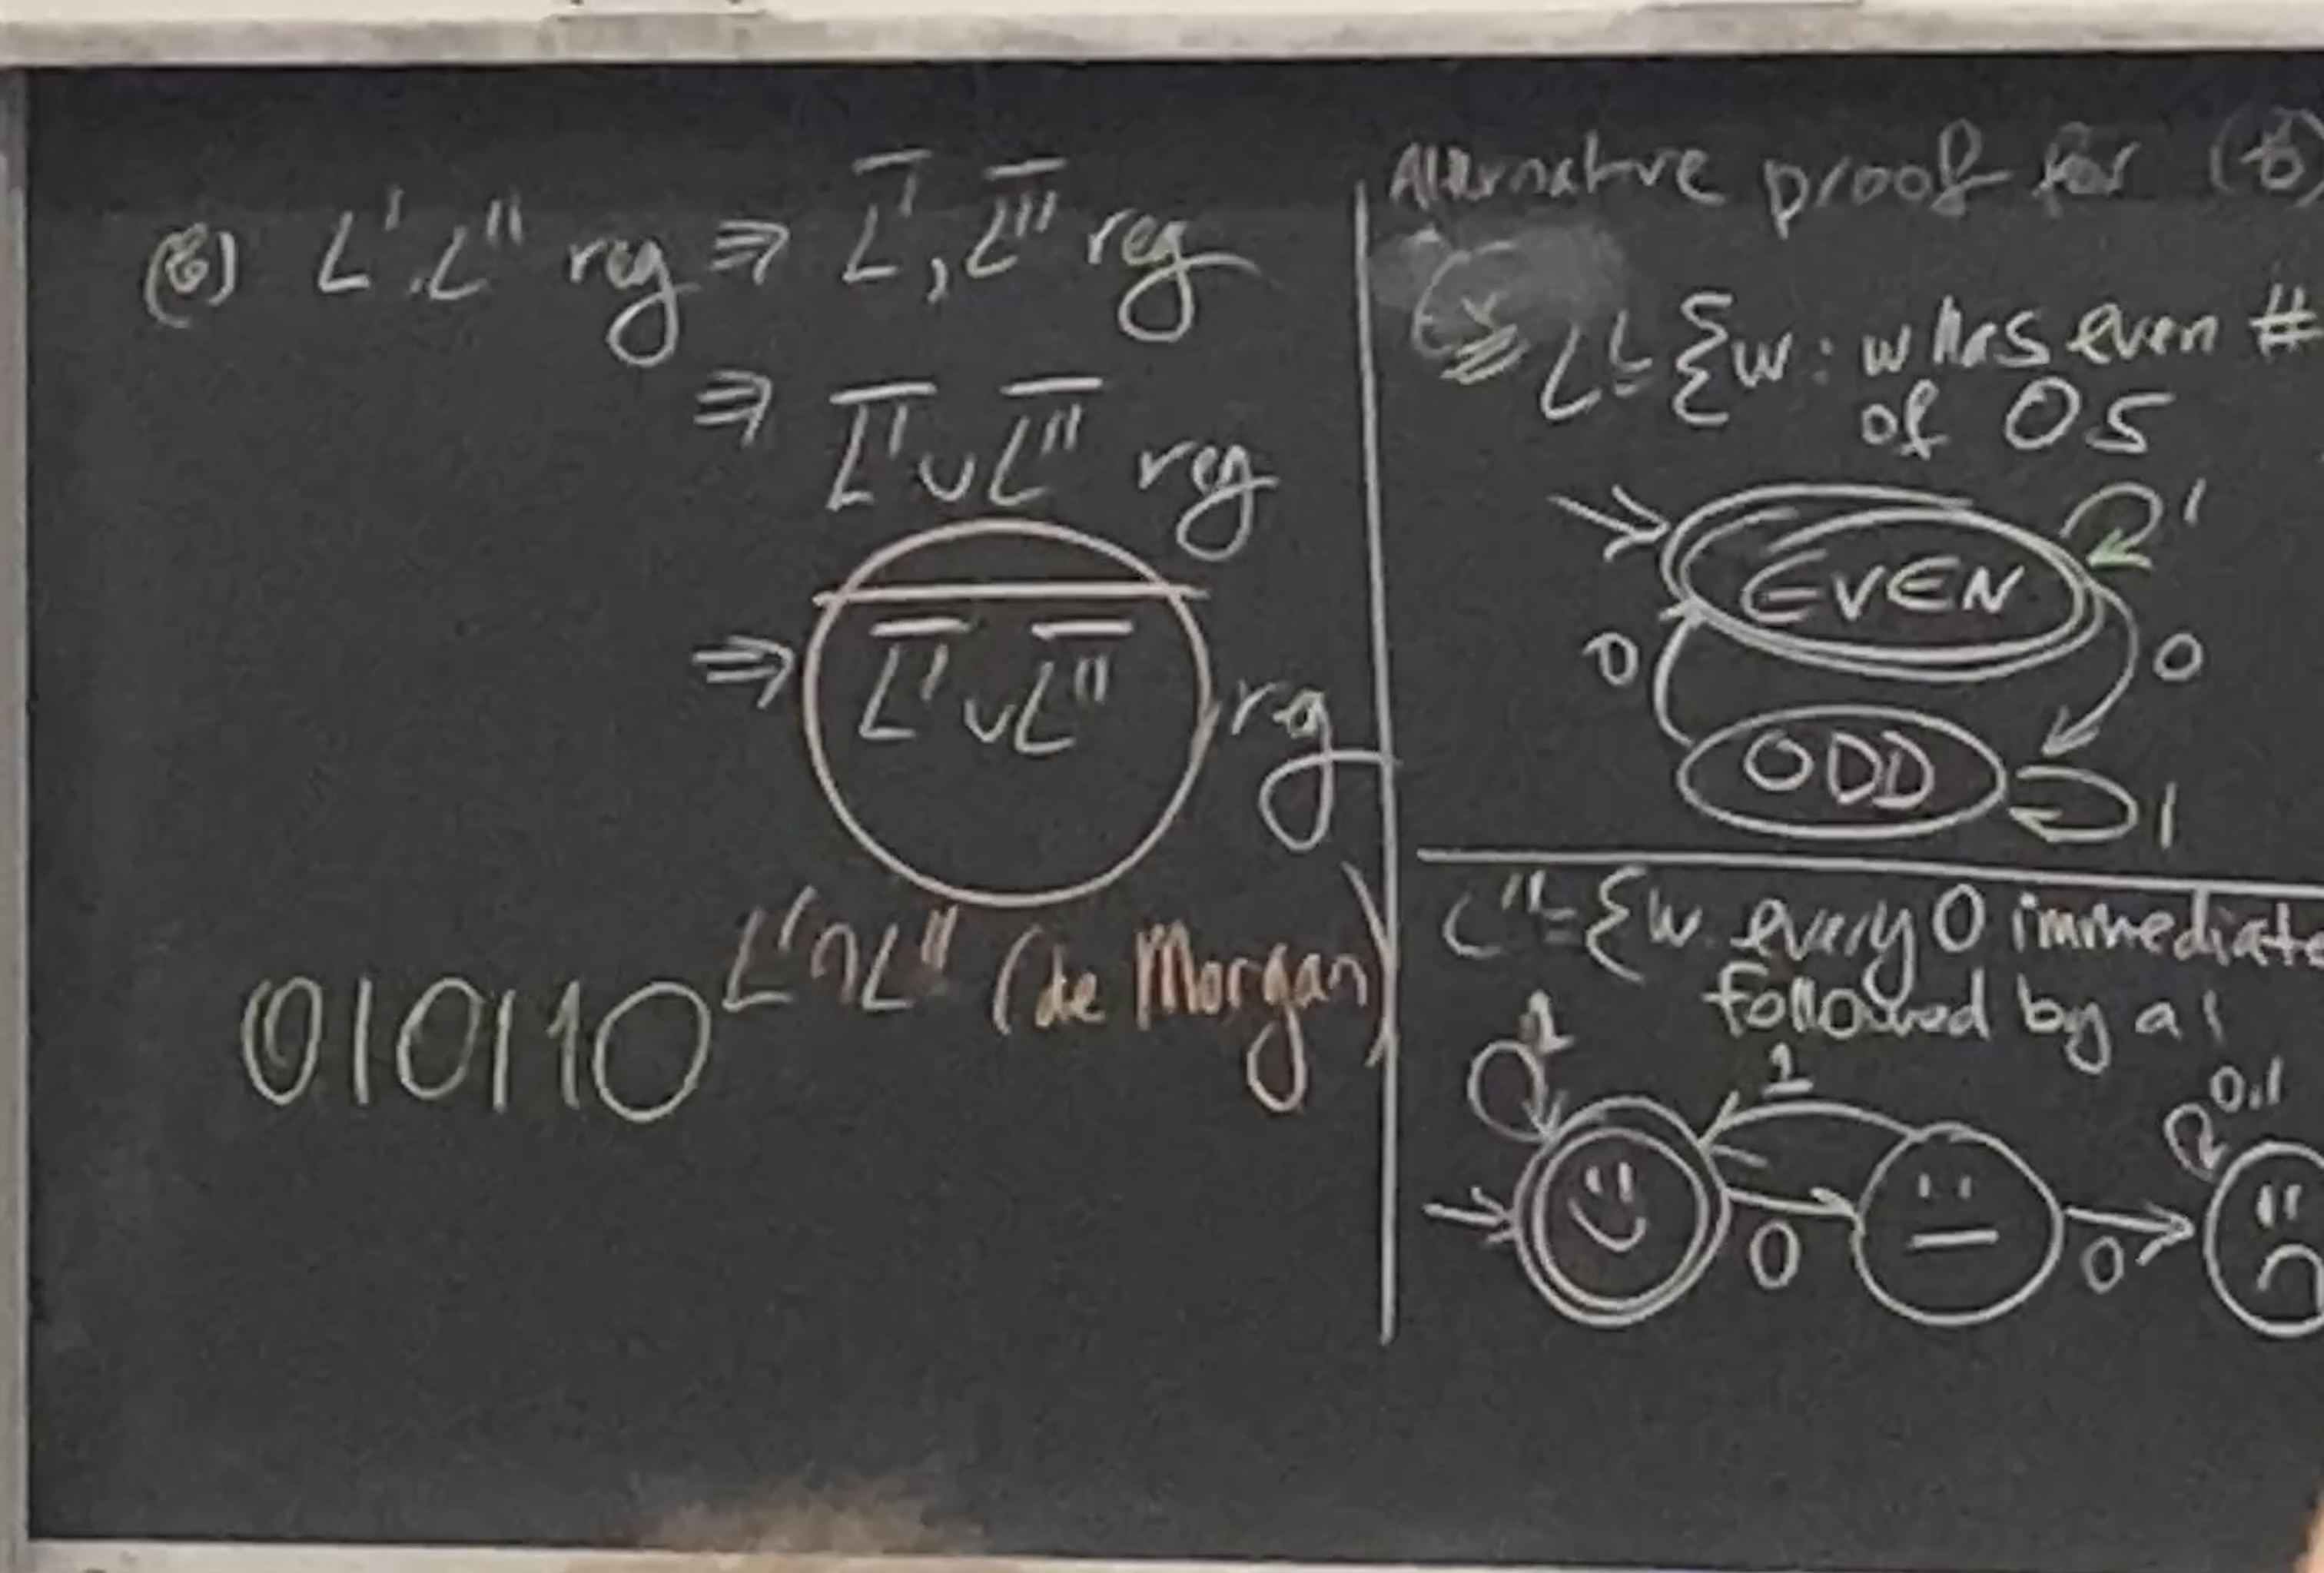 (b) L', L'' reg ⇒ L̅'̅, L̅'̅'̅ reg
⇒ L̅'̅ ∪ L̅'̅'̅ reg
⇒ \overline{L̅'̅ ∪ L̅'̅'̅} reg
L' ∩ L'' (de Morgan)
010110
Alternative proof for (b)
Ex L' = {w : w has even #
of 0s
EVEN
1
0
0
ODD
1
L'' = {w every 0 immediate
followed by a 1
1
1
0,1
0
0